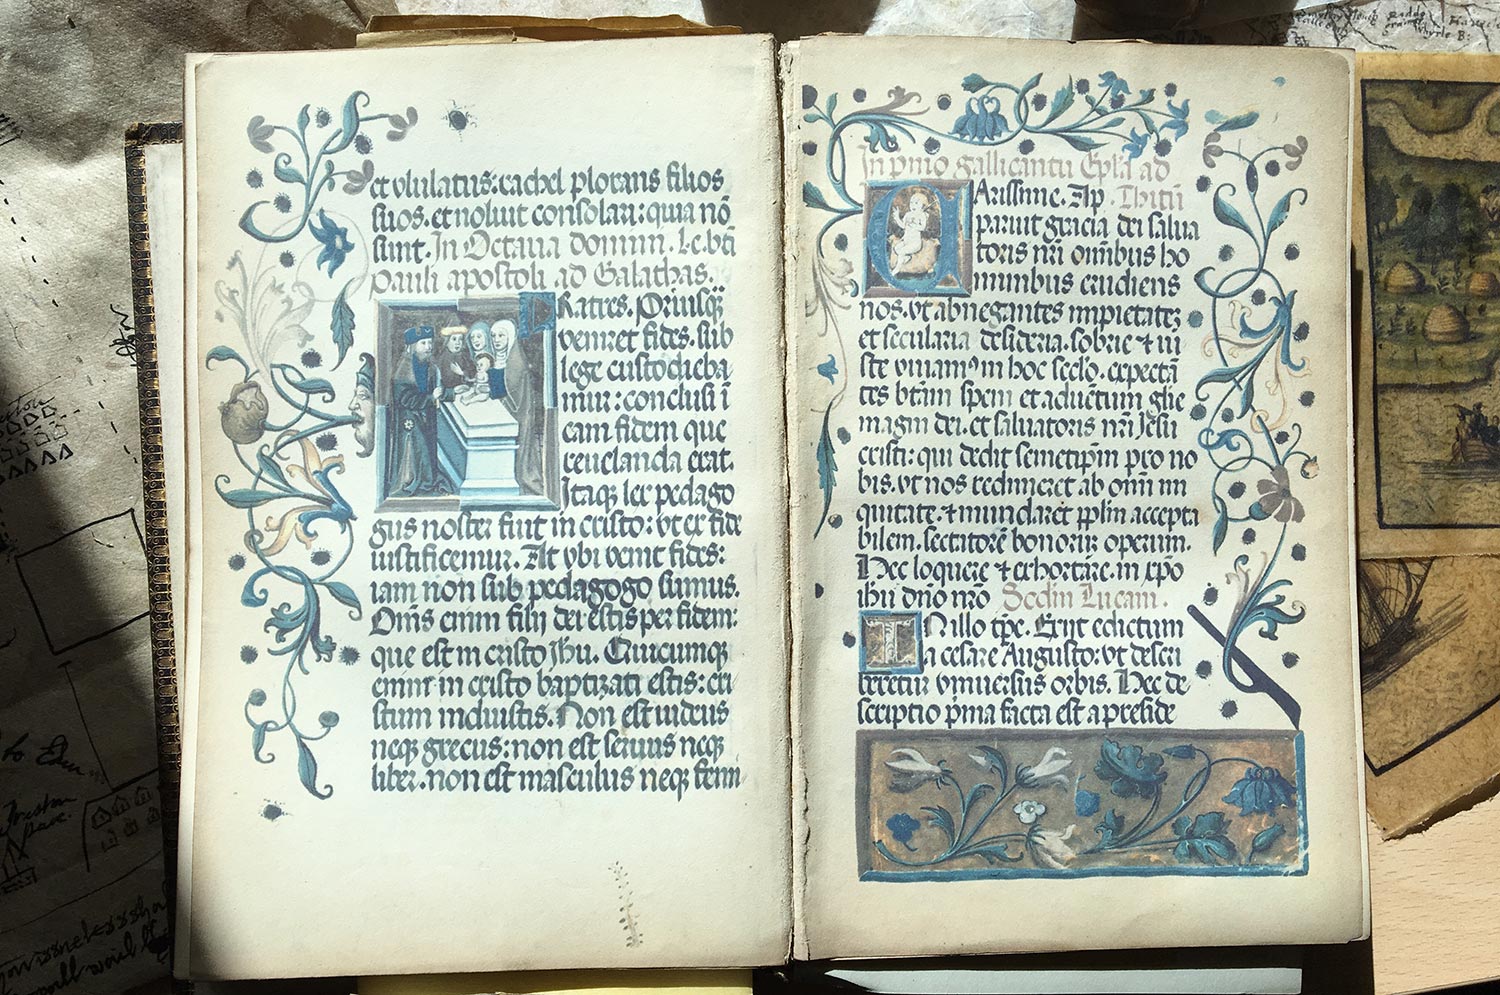 et vlulatus: rachel plorans filios
suos. et noluit consolari: quia nō
sunt. In Octaua domini. Le. bti
Pauli apostoli ad Galathas.
FRatres. Priusq̄
veniret fides. sub
lege custodieba
mur: conclusi ī
eam fidem que
reuelanda erat.
Itaq lex pedago
gus noster fuit in cristo: vt ex fide
iustificemur. At vbi venit fides:
iam non sub pedagogo sumus.
Oms enim filij dei estis per fidem:
que est in cristo Jhu. Quicumq
enim in cristo baptizati estis: cri
stum induistis. Non est iudeus
neq grecus: non est seruus neq
liber. non est masculus neq femi
In pmo gallicantu Epla ad
CArissime. Ap. Thitū
paruit gracia dei salua
toris nri omnibus ho
minibus erudiens
nos. vt abnegantes impietatez
et secularia desideria. sobrie et iu
ste viuam in hoc seclo. expectā
tes btam spem et aduentum glie
magni dei. et saluatoris nri Jesu
cristi: qui dedit semetipm pro no
bis. vt nos redimeret ab omi ini
quitate. et mundaret pplm accepta
bilem. sectatorē bonorū operum.
Hec loquere et exhortare. in xpo
ihu dno nro Secdm Lucam.
IN illo tpe. Exijt edictum
a cesare Augusto: vt descri
beretur vniuersus orbis. Hec de
scriptio pma facta est a preside